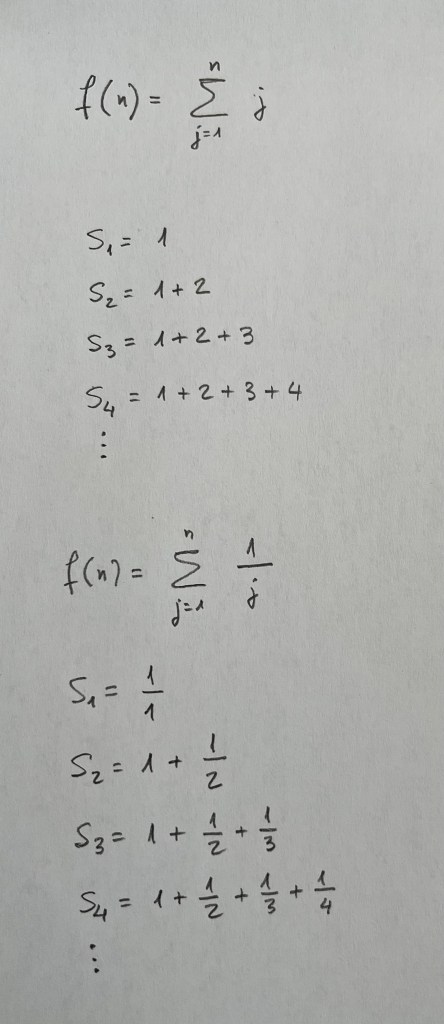 f(n) = ∑_{j=1}^{n} j
S₁ = 1
S₂ = 1 + 2
S₃ = 1 + 2 + 3
S₄ = 1 + 2 + 3 + 4
⋮
f(n) = ∑_{j=1}^{n} 1/j
S₁ = 1/1
S₂ = 1 + 1/2
S₃ = 1 + 1/2 + 1/3
S₄ = 1 + 1/2 + 1/3 + 1/4
⋮